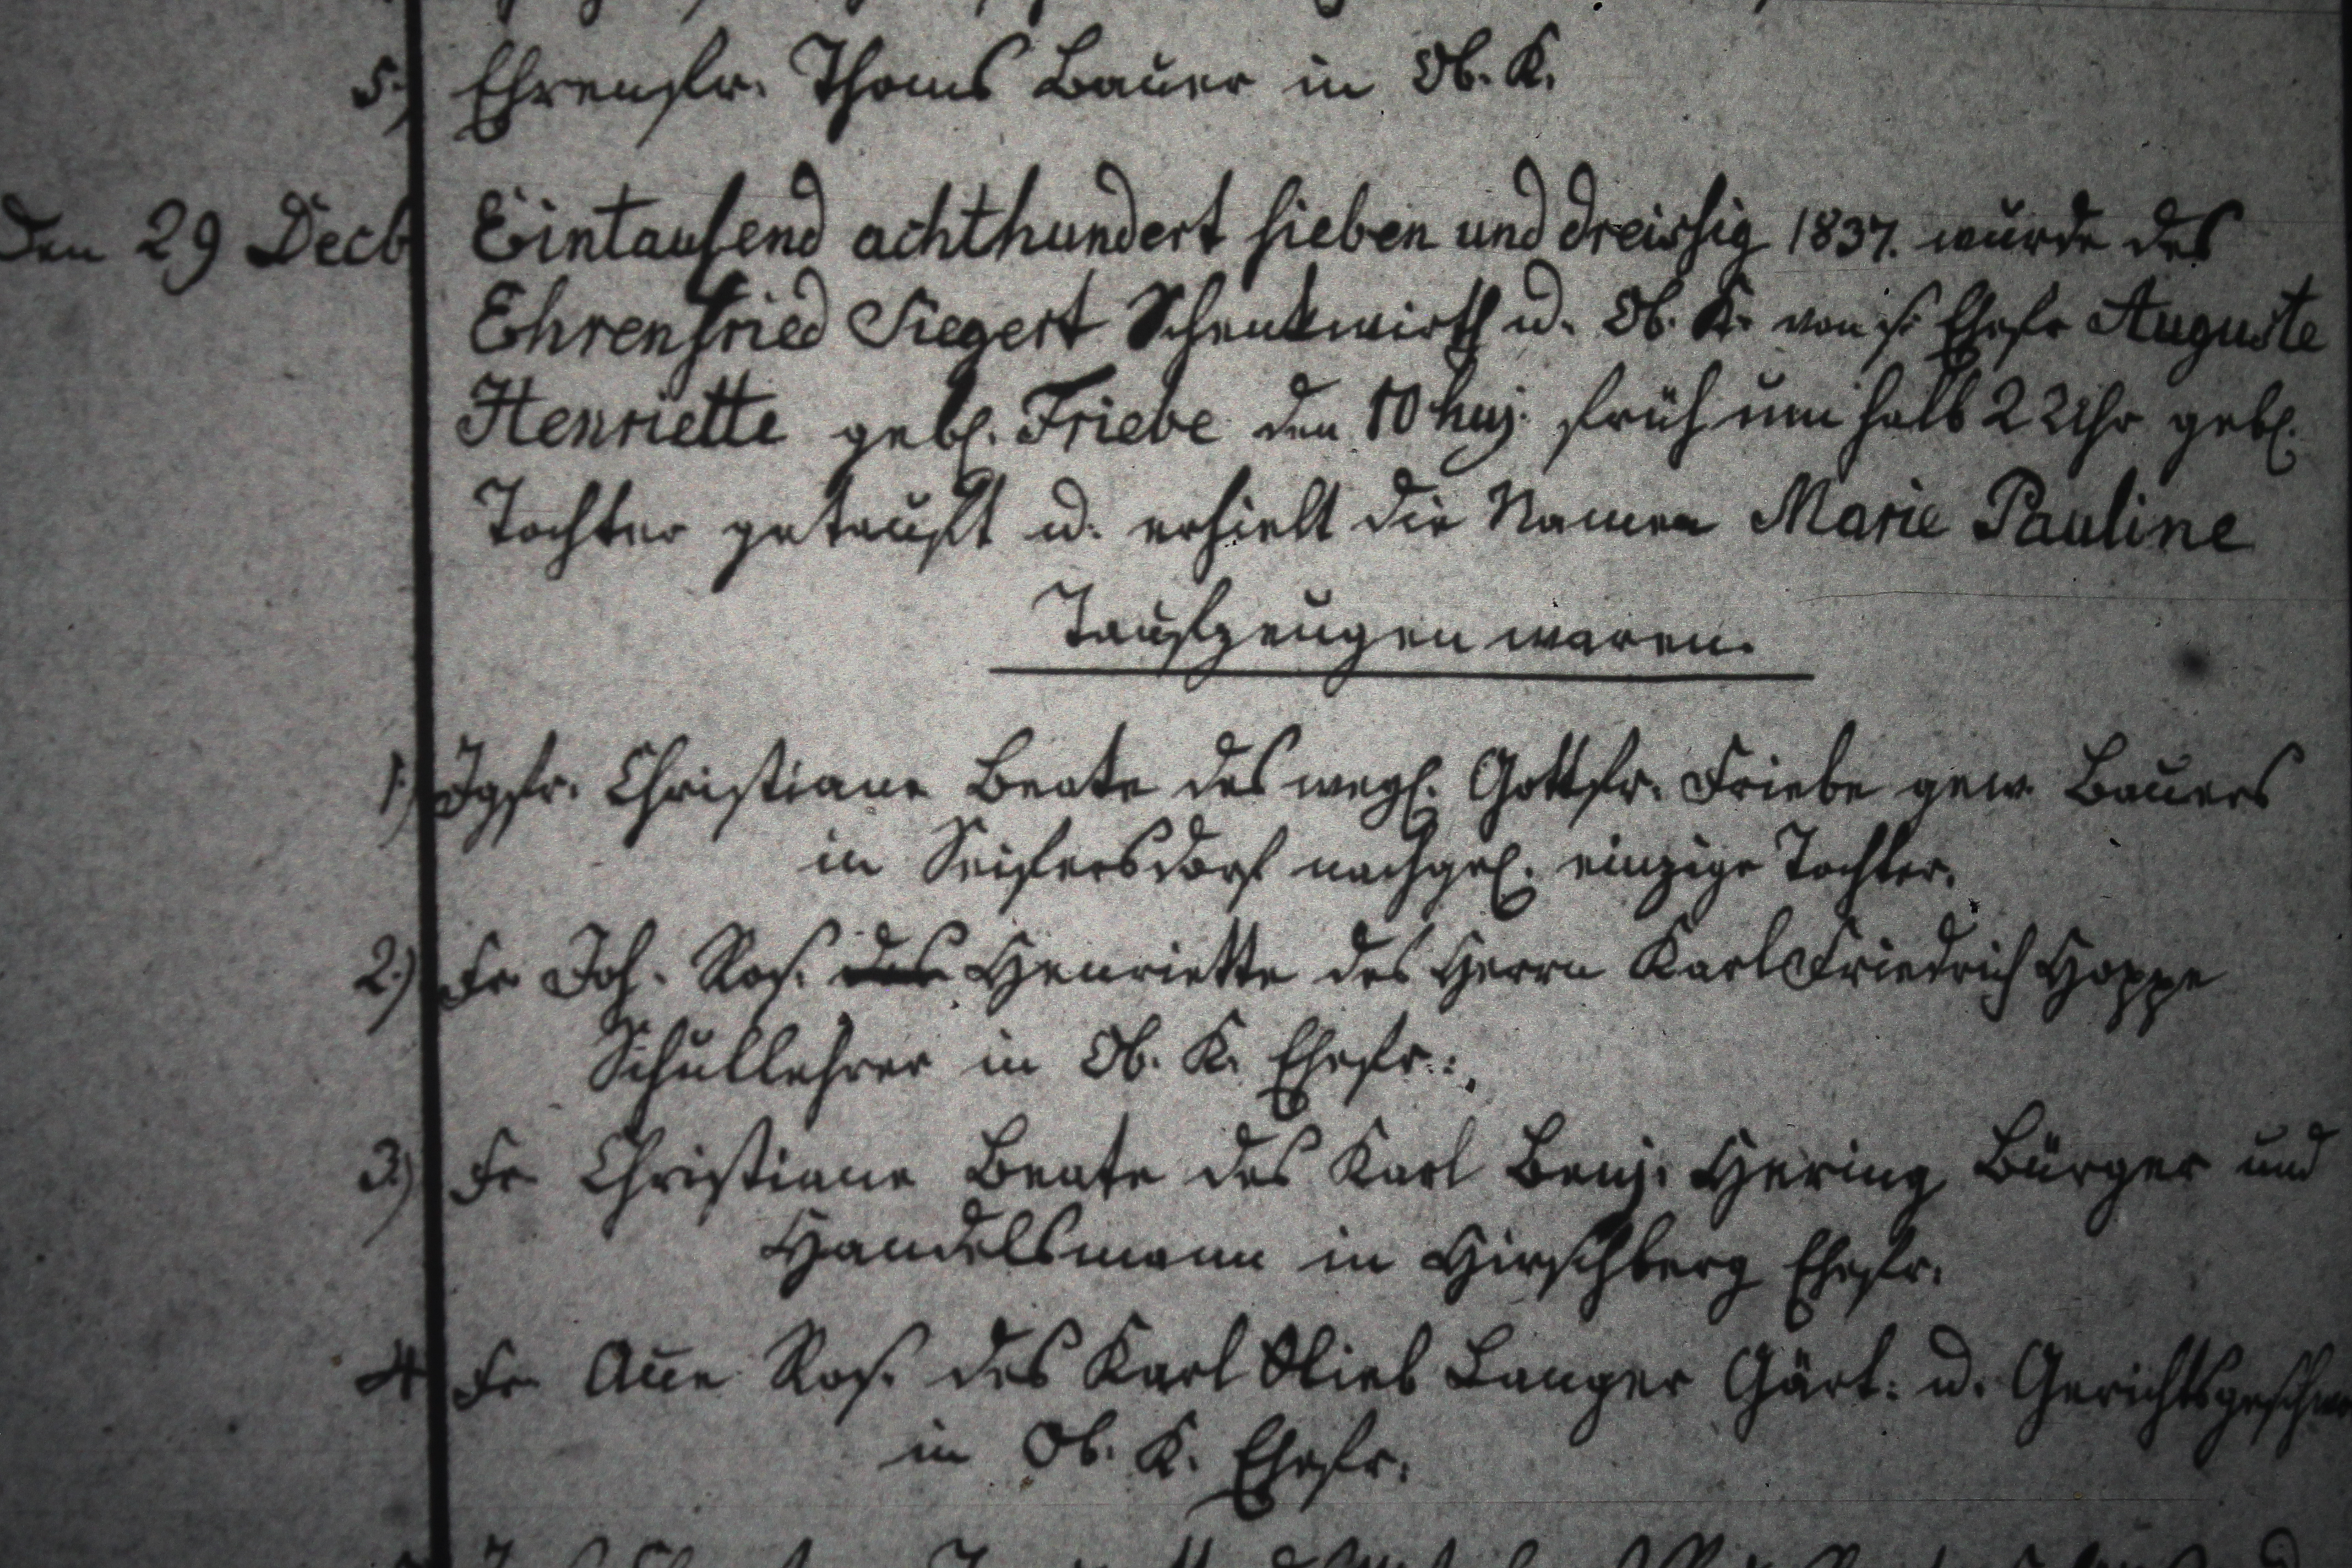 5.) Ehrenfr. Thoms Bauer in Ob. K.
Den 29 Decb Eintausend achthundert sieben und dreissig 1837. wurde des
Ehrenfried Siegert Schenkwirth u. Ob. K. von s. Ehefr Auguste
Henriette gebl. Friebe den 10 huj. früh um halb 2 Uhr gebl.
Tochter getauft u. erhielt die Namen Marie Pauline
Taufzeugen waren.
1.) Jgfr. Christiane Beate des wegl. Gottfr. Friebe gew. Bauers
in Seifersdorf nachgel. einzige Tochter.
2.) Fr Joh. Ros. des Henriette des Herrn Karl Friedrich Hoppe
Schullehrer in Ob. K. Ehefr.:
3.) Fr Christiane Beate des Karl Benj. Hering Bürger und
Handelsmann in Hirschberg Ehefr.
4.) Fr Anne Ros. des Karl Glieb Langer Gärt: u. Gerichtsgesch
in Ob. K. Ehefr.